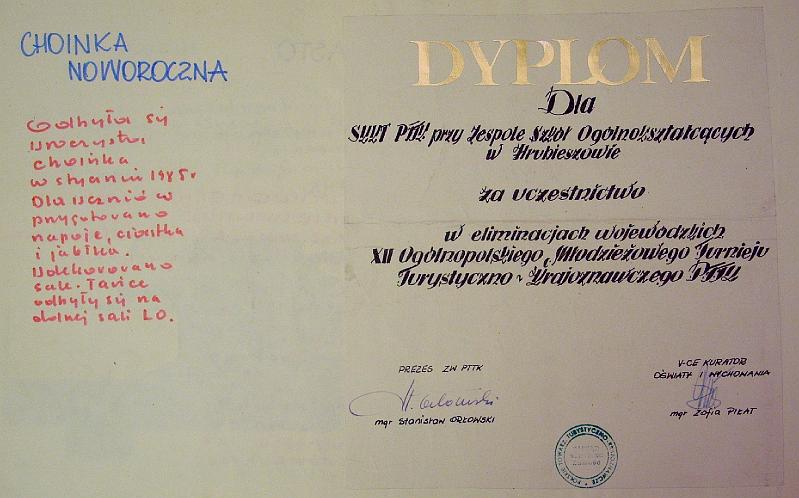 CHOINKA
NOWOROCZNA
Odbyła się
uroczysta
choinka
w styczniu 1985r
Dla uczniów
przygotowano
napoje, ciastka
i jabłka.
Udekorowano
salę. Tańce
odbyły się na
dolnej sali LO.
DYPLOM
Dla
PTTK przy Zespole Szkół Ogólnokształcących
w Hrubieszowie
za uczestnictwo
w eliminacjach wojewódzkich
XII Ogólnopolskiego Młodzieżowego Turnieju
Turystyczno-Krajoznawczego PTTK
PREZES ZW PTTK
mgr Stanisław ORŁOWSKI
V-CE KURATOR
OŚWIATY I WYCHOWANIA
mgr Zofia PIŁAT
POLSKIE TOWARZ. TURYSTYCZNO-KRAJOZNAWCZE